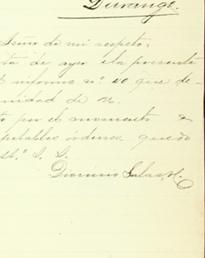 Durango.
Señor de mi respeto.
ta de ayer y la presente
informe nº 20 que de-
nidad de V.
to por el momento &
petables órdenes quedo
S. S.
Dionisio Salas